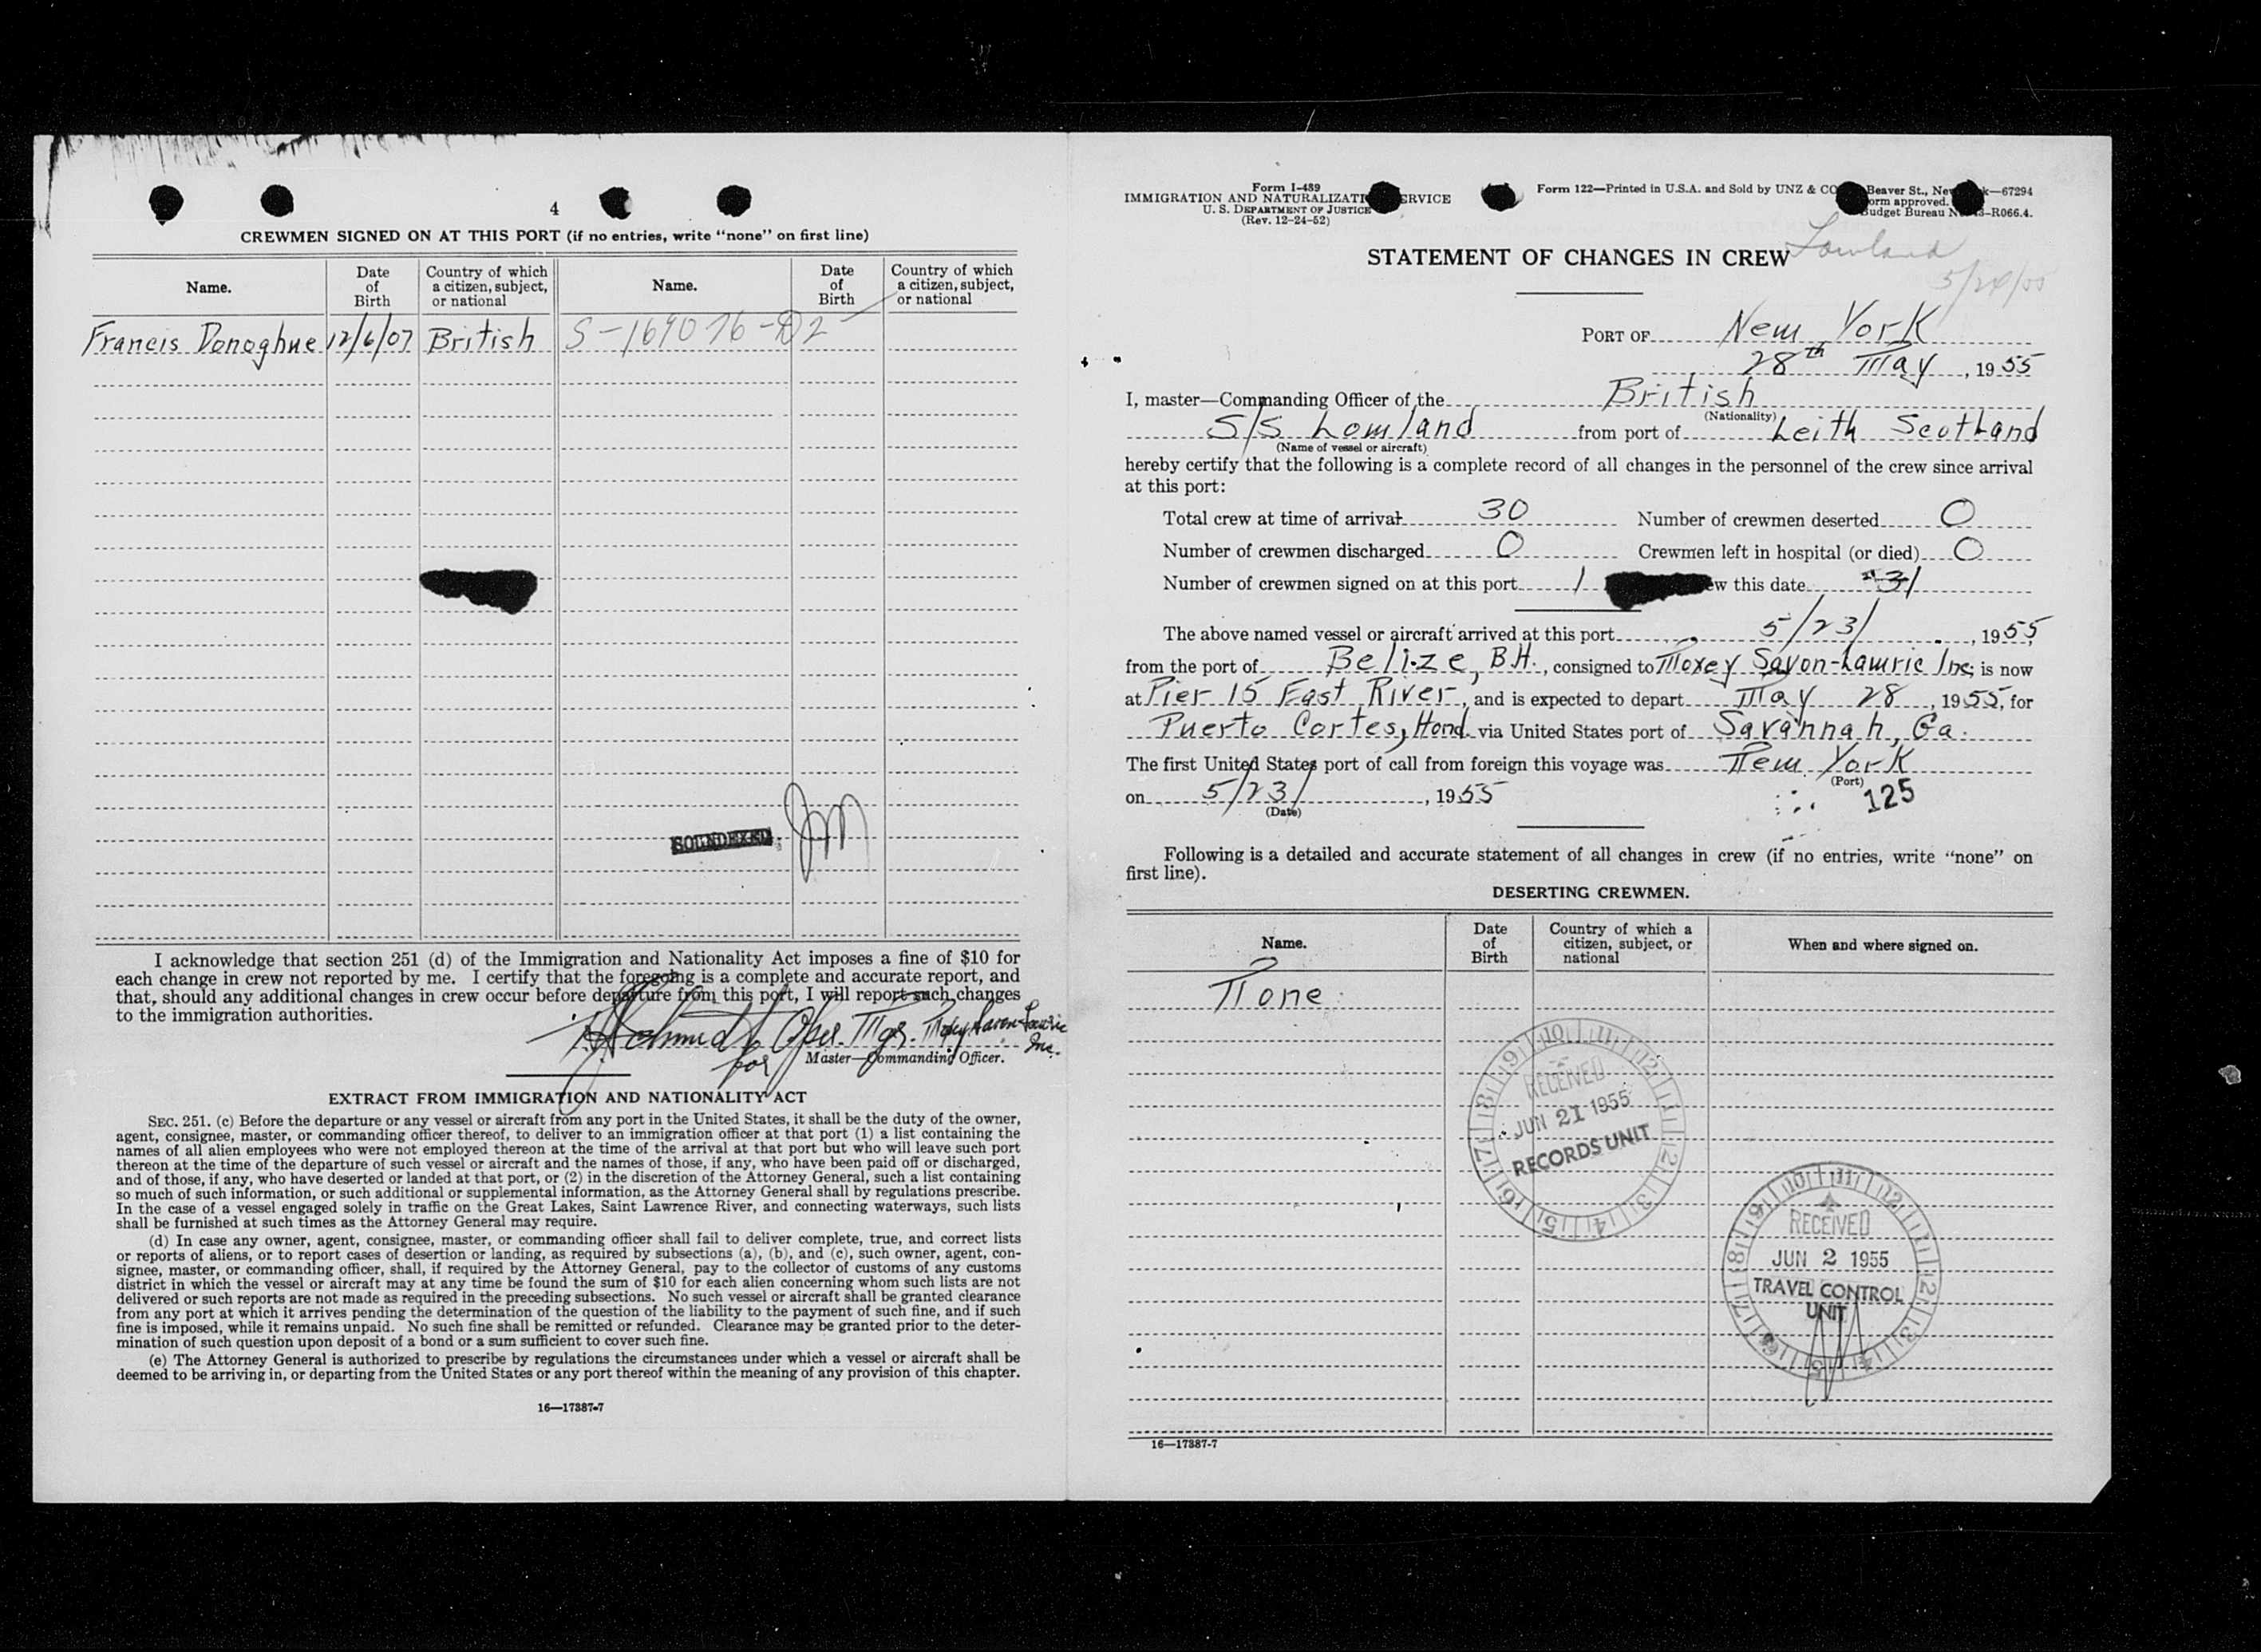 4
CREWMEN SIGNED ON AT THIS PORT (if no entries, write "none" on first line)
Name. Date of Birth Country of which a citizen, subject, or national Name. Date of Birth Country of which a citizen, subject, or national
Francis Donoghue 12/6/07 British S-169076-D2
SOUNDEXED
I acknowledge that section 251 (d) of the Immigration and Nationality Act imposes a fine of $10 for
each change in crew not reported by me. I certify that the foregoing is a complete and accurate report, and
that, should any additional changes in crew occur before departure from this port, I will report such changes
to the immigration authorities.
Schmidt Oper. Mgr.
for Master—Commanding Officer. Inc.
EXTRACT FROM IMMIGRATION AND NATIONALITY ACT
SEC. 251. (c) Before the departure or any vessel or aircraft from any port in the United States, it shall be the duty of the owner,
agent, consignee, master, or commanding officer thereof, to deliver to an immigration officer at that port (1) a list containing the
names of all alien employees who were not employed thereon at the time of the arrival at that port but who will leave such port
thereon at the time of the departure of such vessel or aircraft and the names of those, if any, who have been paid off or discharged,
and of those, if any, who have deserted or landed at that port, or (2) in the discretion of the Attorney General, such a list containing
so much of such information, or such additional or supplemental information, as the Attorney General shall by regulations prescribe.
In the case of a vessel engaged solely in traffic on the Great Lakes, Saint Lawrence River, and connecting waterways, such lists
shall be furnished at such times as the Attorney General may require.
(d) In case any owner, agent, consignee, master, or commanding officer shall fail to deliver complete, true, and correct lists
or reports of aliens, or to report cases of desertion or landing, as required by subsections (a), (b), and (c), such owner, agent, con-
signee, master, or commanding officer, shall, if required by the Attorney General, pay to the collector of customs of any customs
district in which the vessel or aircraft may at any time be found the sum of $10 for each alien concerning whom such lists are not
delivered or such reports are not made as required in the preceding subsections. No such vessel or aircraft shall be granted clearance
from any port at which it arrives pending the determination of the question of the liability to the payment of such fine, and if such
fine is imposed, while it remains unpaid. No such fine shall be remitted or refunded. Clearance may be granted prior to the deter-
mination of such question upon deposit of a bond or a sum sufficient to cover such fine.
(e) The Attorney General is authorized to prescribe by regulations the circumstances under which a vessel or aircraft shall be
deemed to be arriving in, or departing from the United States or any port thereof within the meaning of any provision of this chapter.
16—17387-7
Form I-489
IMMIGRATION AND NATURALIZATI ERVICE
U. S. DEPARTMENT OF JUSTICE
(Rev. 12-24-52)
Form 122—Printed in U.S.A. and Sold by UNZ & CO Beaver St., New k—67294
orm approved.
Budget Bureau N -R066.4.
Lowland
STATEMENT OF CHANGES IN CREW
PORT OF New York
28th May, 1955
I, master—Commanding Officer of the British
(Nationality)
S/S Lowland from port of Leith Scotland
(Name of vessel or aircraft)
hereby certify that the following is a complete record of all changes in the personnel of the crew since arrival
at this port:
Total crew at time of arrival 30 Number of crewmen deserted 0
Number of crewmen discharged 0 Crewmen left in hospital (or died) 0
Number of crewmen signed on at this port 1 ew this date 31
The above named vessel or aircraft arrived at this port 5/23/, 1955,
from the port of Belize, B.H., consigned to Moxey Savon-Lawrie Inc; is now
at Pier 15 East River, and is expected to depart May 28, 1955, for
Puerto Cortes, Hond. via United States port of Savannah, Ga.
The first United States port of call from foreign this voyage was New York
(Port)
on 5/23/, 1955
(Date)
125
Following is a detailed and accurate statement of all changes in crew (if no entries, write "none" on
first line).
DESERTING CREWMEN.
Name. Date of Birth Country of which a citizen, subject, or national When and where signed on.
None
RECEIVED
JUN 21 1955
RECORDS UNIT
RECEIVED
JUN 2 1955
TRAVEL CONTROL
UNIT
16—17387-7